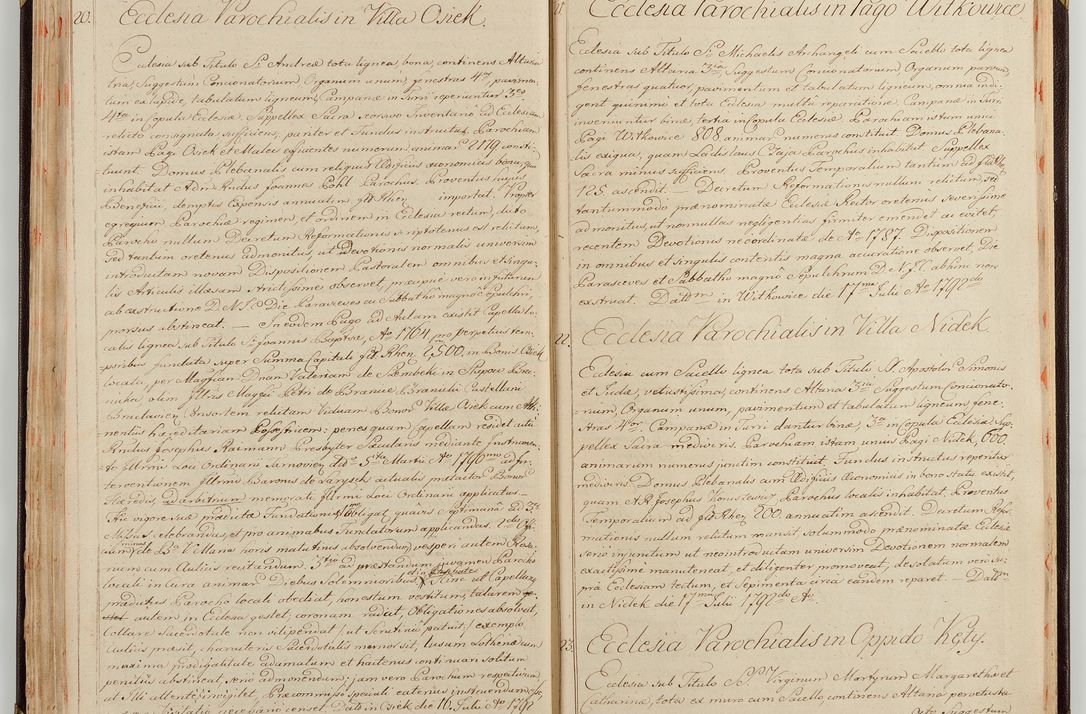 20. Ecclesia Parochialis in Villa Osiek.
Ecclesia sub Titulo Sti Andreæ tota lignea, bona, continens Altaria
tria, Suggestum Concionatorium, Organum unum, fenestras 4or, pavimen-
tum ex lapide, tabulatum ligneum, Campanæ in Turri reperiuntur 3es
4ta in copula Ecclesiæ, Suppellex Sacra seorsivo Inventario ad Ecclesiam
relicto consignata sufficiens, pariter et Fundus instructus. Parochiam
istam Pagi Osiek et Malec efficientes numerum animar. 2119 consti-
tuunt. Domus Plebanalis cum reliquis Ædificiis œconomicis bona, quam
inhabitat Adm Rndus Joannes Pohl Parochus. Proventus hujus
Beneficii, demptis Expensis annuatim flr Rhen importat. Propter
egregium Parochiæ regimen, et ordinem in Ecclesia rectum, dicto
Parocho nullum Decretum Reformationis scriptotenus est relictum,
sed tantum oretenus admonitus, ut Devotionis normalis universim
introductam novam Dispositionem Pastoralem omnibus et singu-
lis Articulis illæsam strictissime observet, præcipue vero in futurum
ab exstructione D.N.J.C. Die Parasceves ac Sabbatho magno Sepulchri,
prorsus abstineat. — In eodem Pago ad Aulam existit Capella lo-
calis lignea sub Titulo Sti Joannis Baptistæ, Ao 1764 pro perpetuis tem-
poribus fundata super Summa Capitali flr Rhen 6,500, in Bonis Osiek
locata, per Magfam Dnam Valeriam de
nika olim Illris Magfci Petri de Branice Branicki Castellani
Braclavien Consortem relictam Viduam Bonor Villæ Osiek cum Atti-
nentiis hæreditariam Possestricem: penes quam Capellam residet actu
Rndus Josephus Raimann Presbyter Sæcularis mediante Instrumen-
to Illrmi Loci Ordinarii Tarnovien, ddo 5ta Martii Ao 1790mo ad in-
terventionem Illrmi Baronis de Larysch actualis prefactor Bonor
Hæredis, ad arbitrium memorati Illrmi Loci Ordinarii applicatus —
Hic vigore suæ prædictæ Fundationis 1mo obligat quavis Septimana ad 3es
Missas celebrandas, et pro animabus Fundatorum applicandas. 2do Offi-
cium de Ba V. Maria horis matutinis absolvendum, vesperi autem Rosa-
rium cum Aulicis recitandum. 3tio ad præstandum juvamen Parocho
locali in Cura animar. Diebus Solemnioribus, et Hinc ut Capellanus
prædictus Parocho locali obediat, honestum vestitum, talarem
autem in Ecclesia gestet, coronam radiat, Obligationes absolvat,
Collare Sacerdotale non vilipendat, ut Scrutinii patuit, exemplo
Aulicis præsit, characteris Sacerdotalis memor sit, lusum
maxima prodigalitate adamatum et haitenus continuari solitum
penitus abstineat, serio admonendum; jam vero Parochum respective
ut Illi attente invigilet, Præcommisso speciali eatenus instruendum
necessario censet. Datis in Osiek die 16 Julii Ao 1790
21. Ecclesia Parochialis in Pago Witkowice.
Ecclesia sub Titulo Sti Michaelis Archangeli cum Sacello tota lignea
continens Altaria 3ia, Suggestum Concionatorium, Organum parvum,
fenestras quatuor, pavimentum et tabulatum ligneum, omnia indi-
gent quinimi et tota Ecclesia multa reparatione. Campanæ in Turri
inveniuntur binæ, tertia in copula Ecclesiæ. Parochiam istum unici
Pagi Witkowice 808 animar. numerus constituit. Domus Plebana-
lis exigua, quam Ladislaus Czaja Parochus inhabitat. Suppellex
Sacra minus sufficiens. Proventus Temporalium tantum ad flr Rh
125 ascendit. — Decretum Reformationis nullum relictum, sed
tantummodo prænominatæ Ecclesiæ Rector oretenus severissime
admonitus, ut nonnullas negligentias firmiter emendet ac evitet,
recentem Devotionis neocordinatæ de Ao 1787 Dispositionem
in omnibus et singulis contentis magna accuratione observet, Die
Parasceves et Sabbatho magno Sepulchrum D.N.J.C. abhinc non
exstruat. Dattm in Witkowice die 17ma Julii Ao 1790do
22. Ecclesia Parochialis in Villa Nidek.
Ecclesia cum Sacello lignea tota sub Titulo SS. Apostolor Simonis
et Judæ, vetustissima, continens Altaria 3ia Suggestum Concionato-
rium, Organum unum, pavimentum et tabulatum ligneum, fene-
stras 4or. Campanæ in Turri dantur binæ, 3a in copula Ecclesiæ. Sup-
pellex Sacra mediocris. Parochiam istam unius Pagi Nidek, 600,
animarum numerus junctim constituit. Fundus instructus reperitur
mediocris. Domus Plebanalis cum Ædificiis Œconomicis in bono statu existit,
quam AR Josephus Parochus localis inhabitat. Proventus
Temporalium ad flr Rhen 200, annuatim ascendit. Decretum Refor-
mationis nullum relictum mansit, solummodo prænominatæ Ecclesiæ
serio injunctum ut neointroductam universim Devotionem normalem
exactissime manuteneat, et diligenter promoveat, desolatum vero su-
pra Ecclesiam tectum, et Sepimenta circa eandem reparet. — Dattm
in Nidek die 17ma Julii 1790do Ao
23. Ecclesia Parochialis in Oppido Kęty.
Ecclesia sub Titulo SS. Virginum Martyrum Margarethæ et
Catharinæ, tota ex muro cum Sacello, continens Altaria pervetusta
Octo, Suggestum